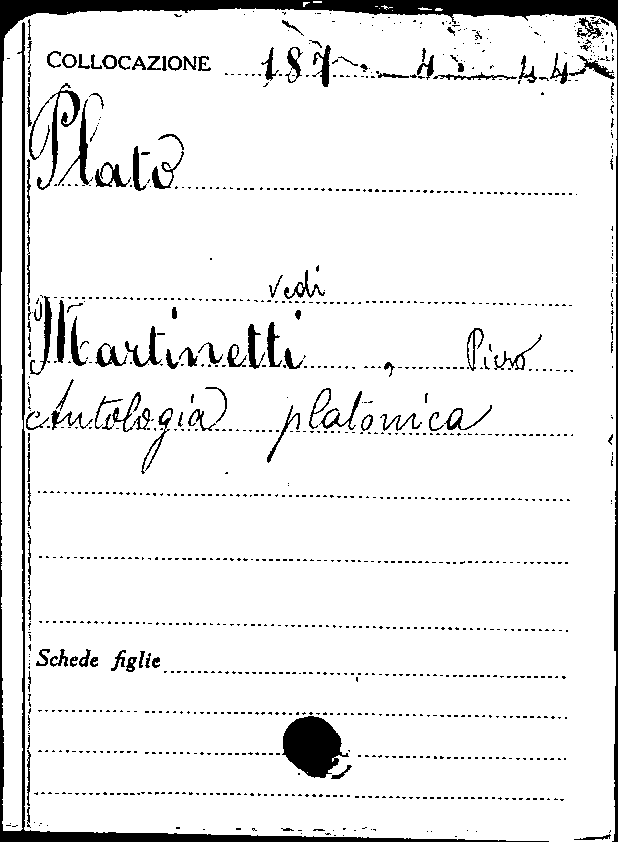 COLLOCAZIONE 187. 4. 44
Plato
vedi
Martinetti, Piero
Antologia platonica
Schede figlie